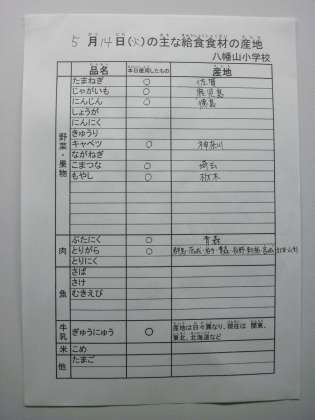 5月14日(火)の主な給食食材の産地
八幡山小学校
品名 本日使用したもの 産地
野菜・果物
たまねぎ ○ 佐賀
じゃがいも ○ 鹿児島
にんじん ○ 徳島
しょうが
にんにく
きゅうり
キャベツ ○ 神奈川
ながねぎ
こまつな ○ 埼玉
もやし ○ 栃木
肉
ぶたにく ○ 青森
とりがら ○
とりにく
魚
さば
さけ
むきえび
牛乳
ぎゅうにゅう ○ 産地は日々異なり、現在は 関東、
東北、北海道など
米 こめ
他 たまご